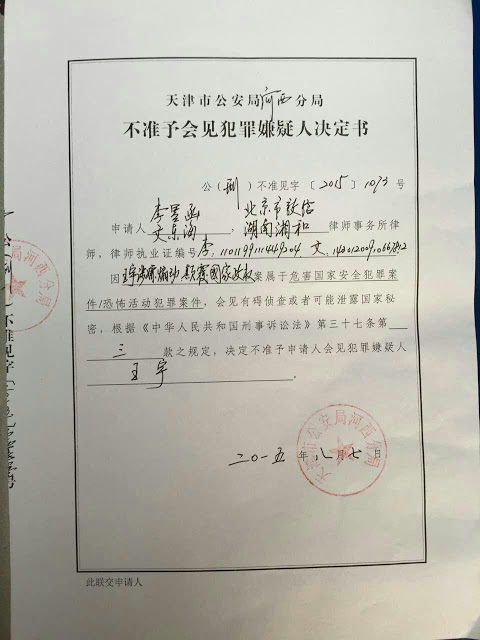 天津市公安局河西分局
不准予会见犯罪嫌疑人决定书
公(刑)不准见字〔2015〕1073号
李昱函 北京市敦信
申请人文东海，湖南湘和律师事务所律
师，律师执业证编号李.11011991111449204 文.
因王宇涉嫌煽动颠覆国家政权案属于危害国家安全犯罪案
件/恐怖活动犯罪案件，会见有碍侦查或者可能泄露国家秘
密，根据《中华人民共和国刑事诉讼法》第三十七条第
三款之规定，决定不准予申请人会见犯罪嫌疑人
王宇。
天津市公安局河西分局
二〇一五年八月七日
此联交申请人
不准见字